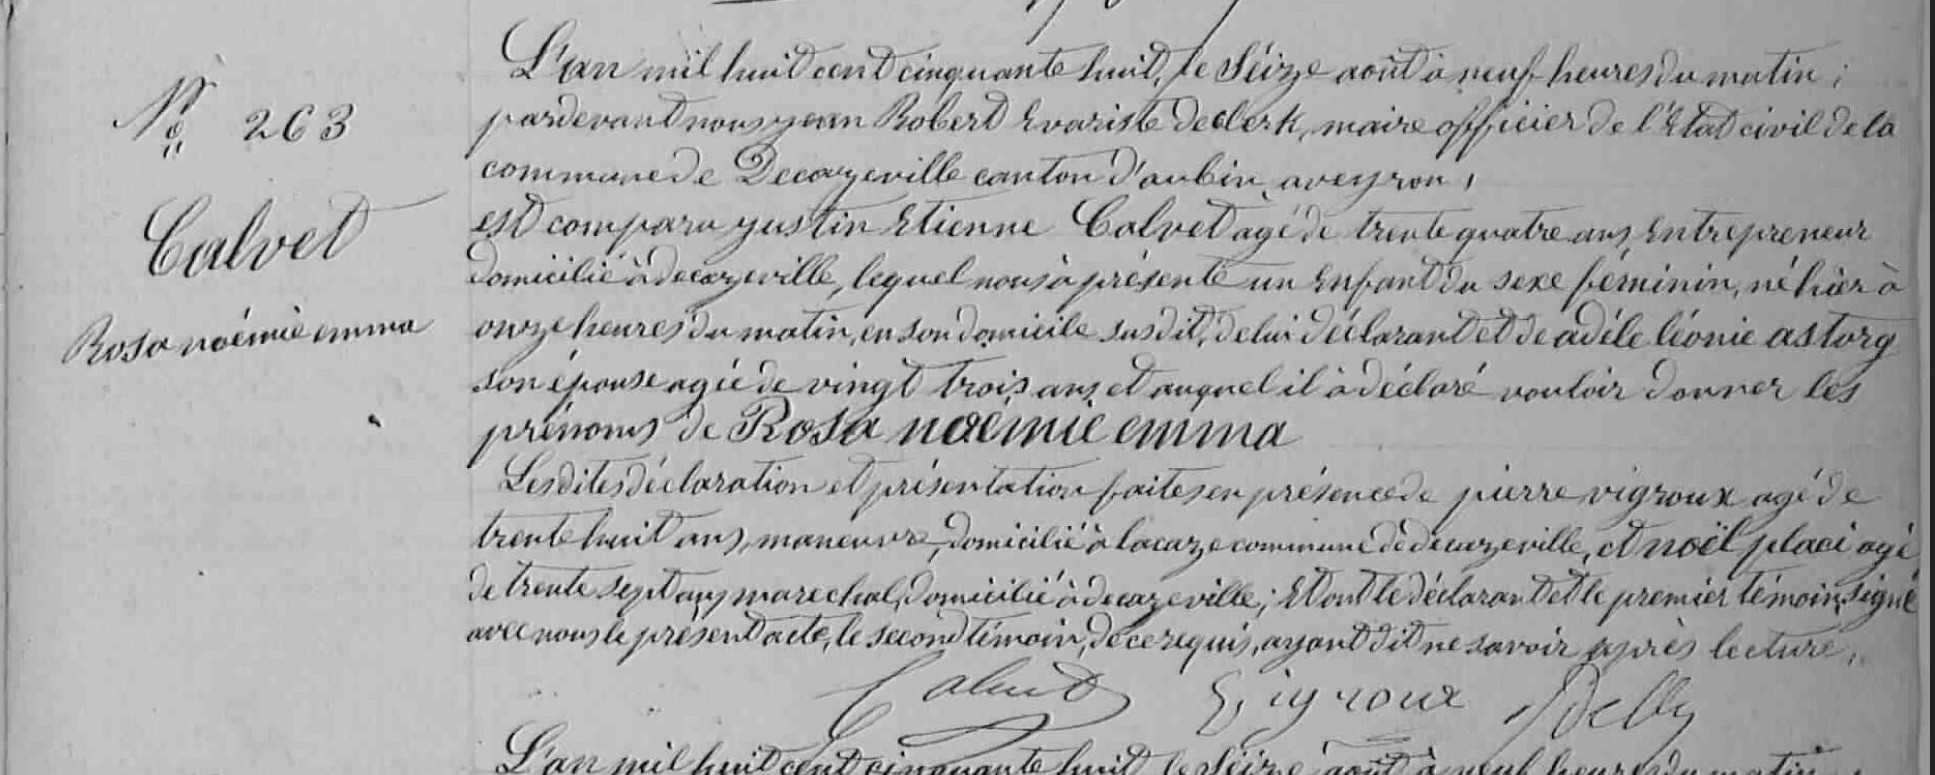 N° 263
Calvet
Rosa noémie emma
L'an mil huit cent cinquante huit, le Seize août à neuf heures du matin ;
pardevant nous jean Robert Evariste declerk, maire officier de l'Etat civil de la
commune de Decazeville canton d'aubin, aveyron,
est comparu justin Etienne Calvet agé de trente quatre ans Entrepreneur
domicilié à decazeville, lequel nous à présenté un Enfant du sexe féminin, né hier à
onze heures du matin, en son domicile susdit, de lui déclarant et de adéle léonie astorg
son épouse agée de vingt trois ans et auquel il à déclaré vouloir donner les
prénoms de Rosa noémie emma
Lesdites déclaration et présentation faites en présence de pierre vigroux agé de
trente huit ans, maneuvre, domicilié à lacaze commune de decazeville, et noël placi agé
de trente sept ans marechal, domicilié à decazeville ; Et ont le déclarant et le premier témoin, signé
avec nous le présent acte, le second témoin, de ce requis, ayant dit ne savoir après lecture.
Calvet Vigroux
L'an mil huit cent cinquante huit le Seize août à neuf heures du matin